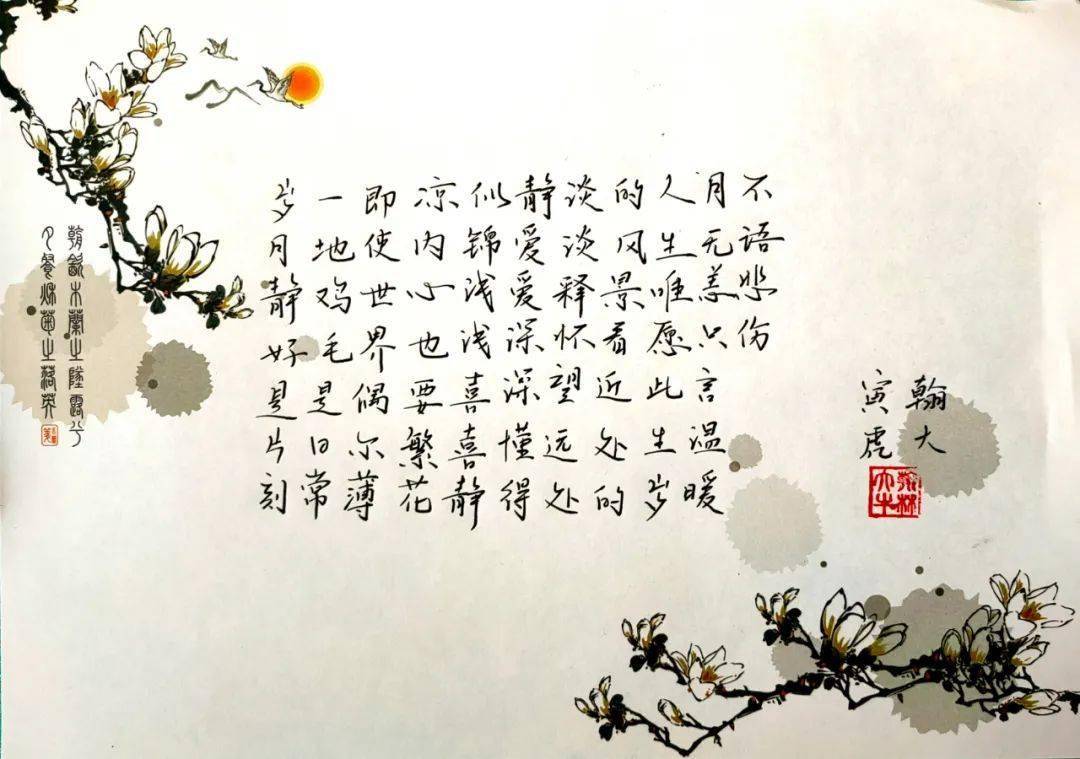 朝飲木蘭之墜露兮
夕餐秋菊之落英
岁月静好是片刻
一地鸡毛是日常
即使世界偶尔薄
凉内心也要繁花
似锦浅浅喜喜静
静爱爱深深懂得
淡淡释怀望远处
的风景看近处的
人生唯愿此生岁
月无恙只言温暖
不语悲伤
寅虎
翰大